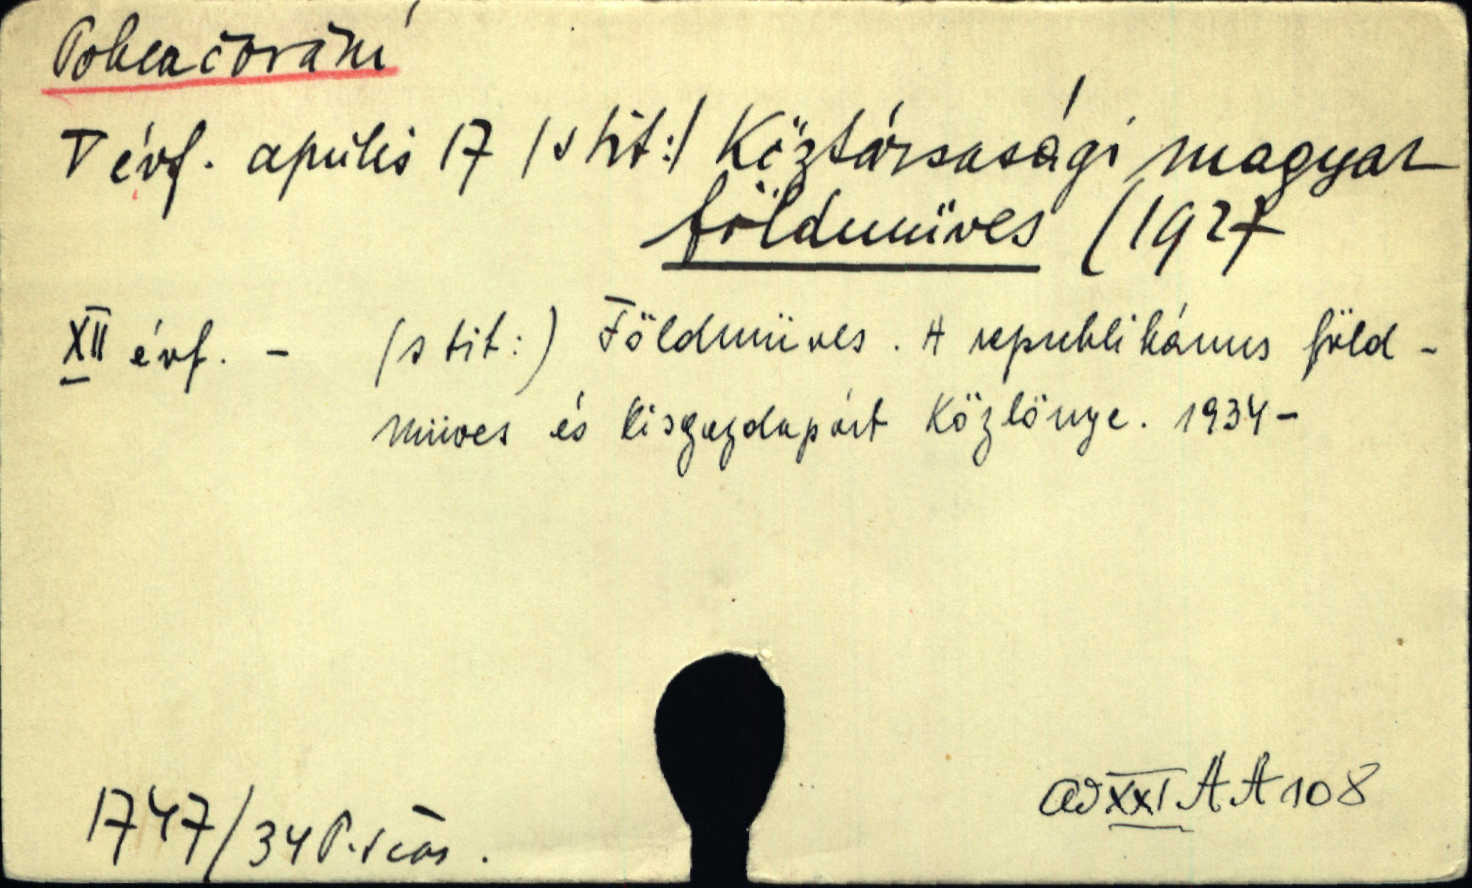 Pokračování
V évf. április 17 /s tit:/ Köztársasági magyar
földmüves (1927
XII évf. - (s tit:) Földmüves. A republikánus föld-
müves és kisgazdapárt Közlönye. 1934-
1747/34 P. čas.
ad XXI AA 108